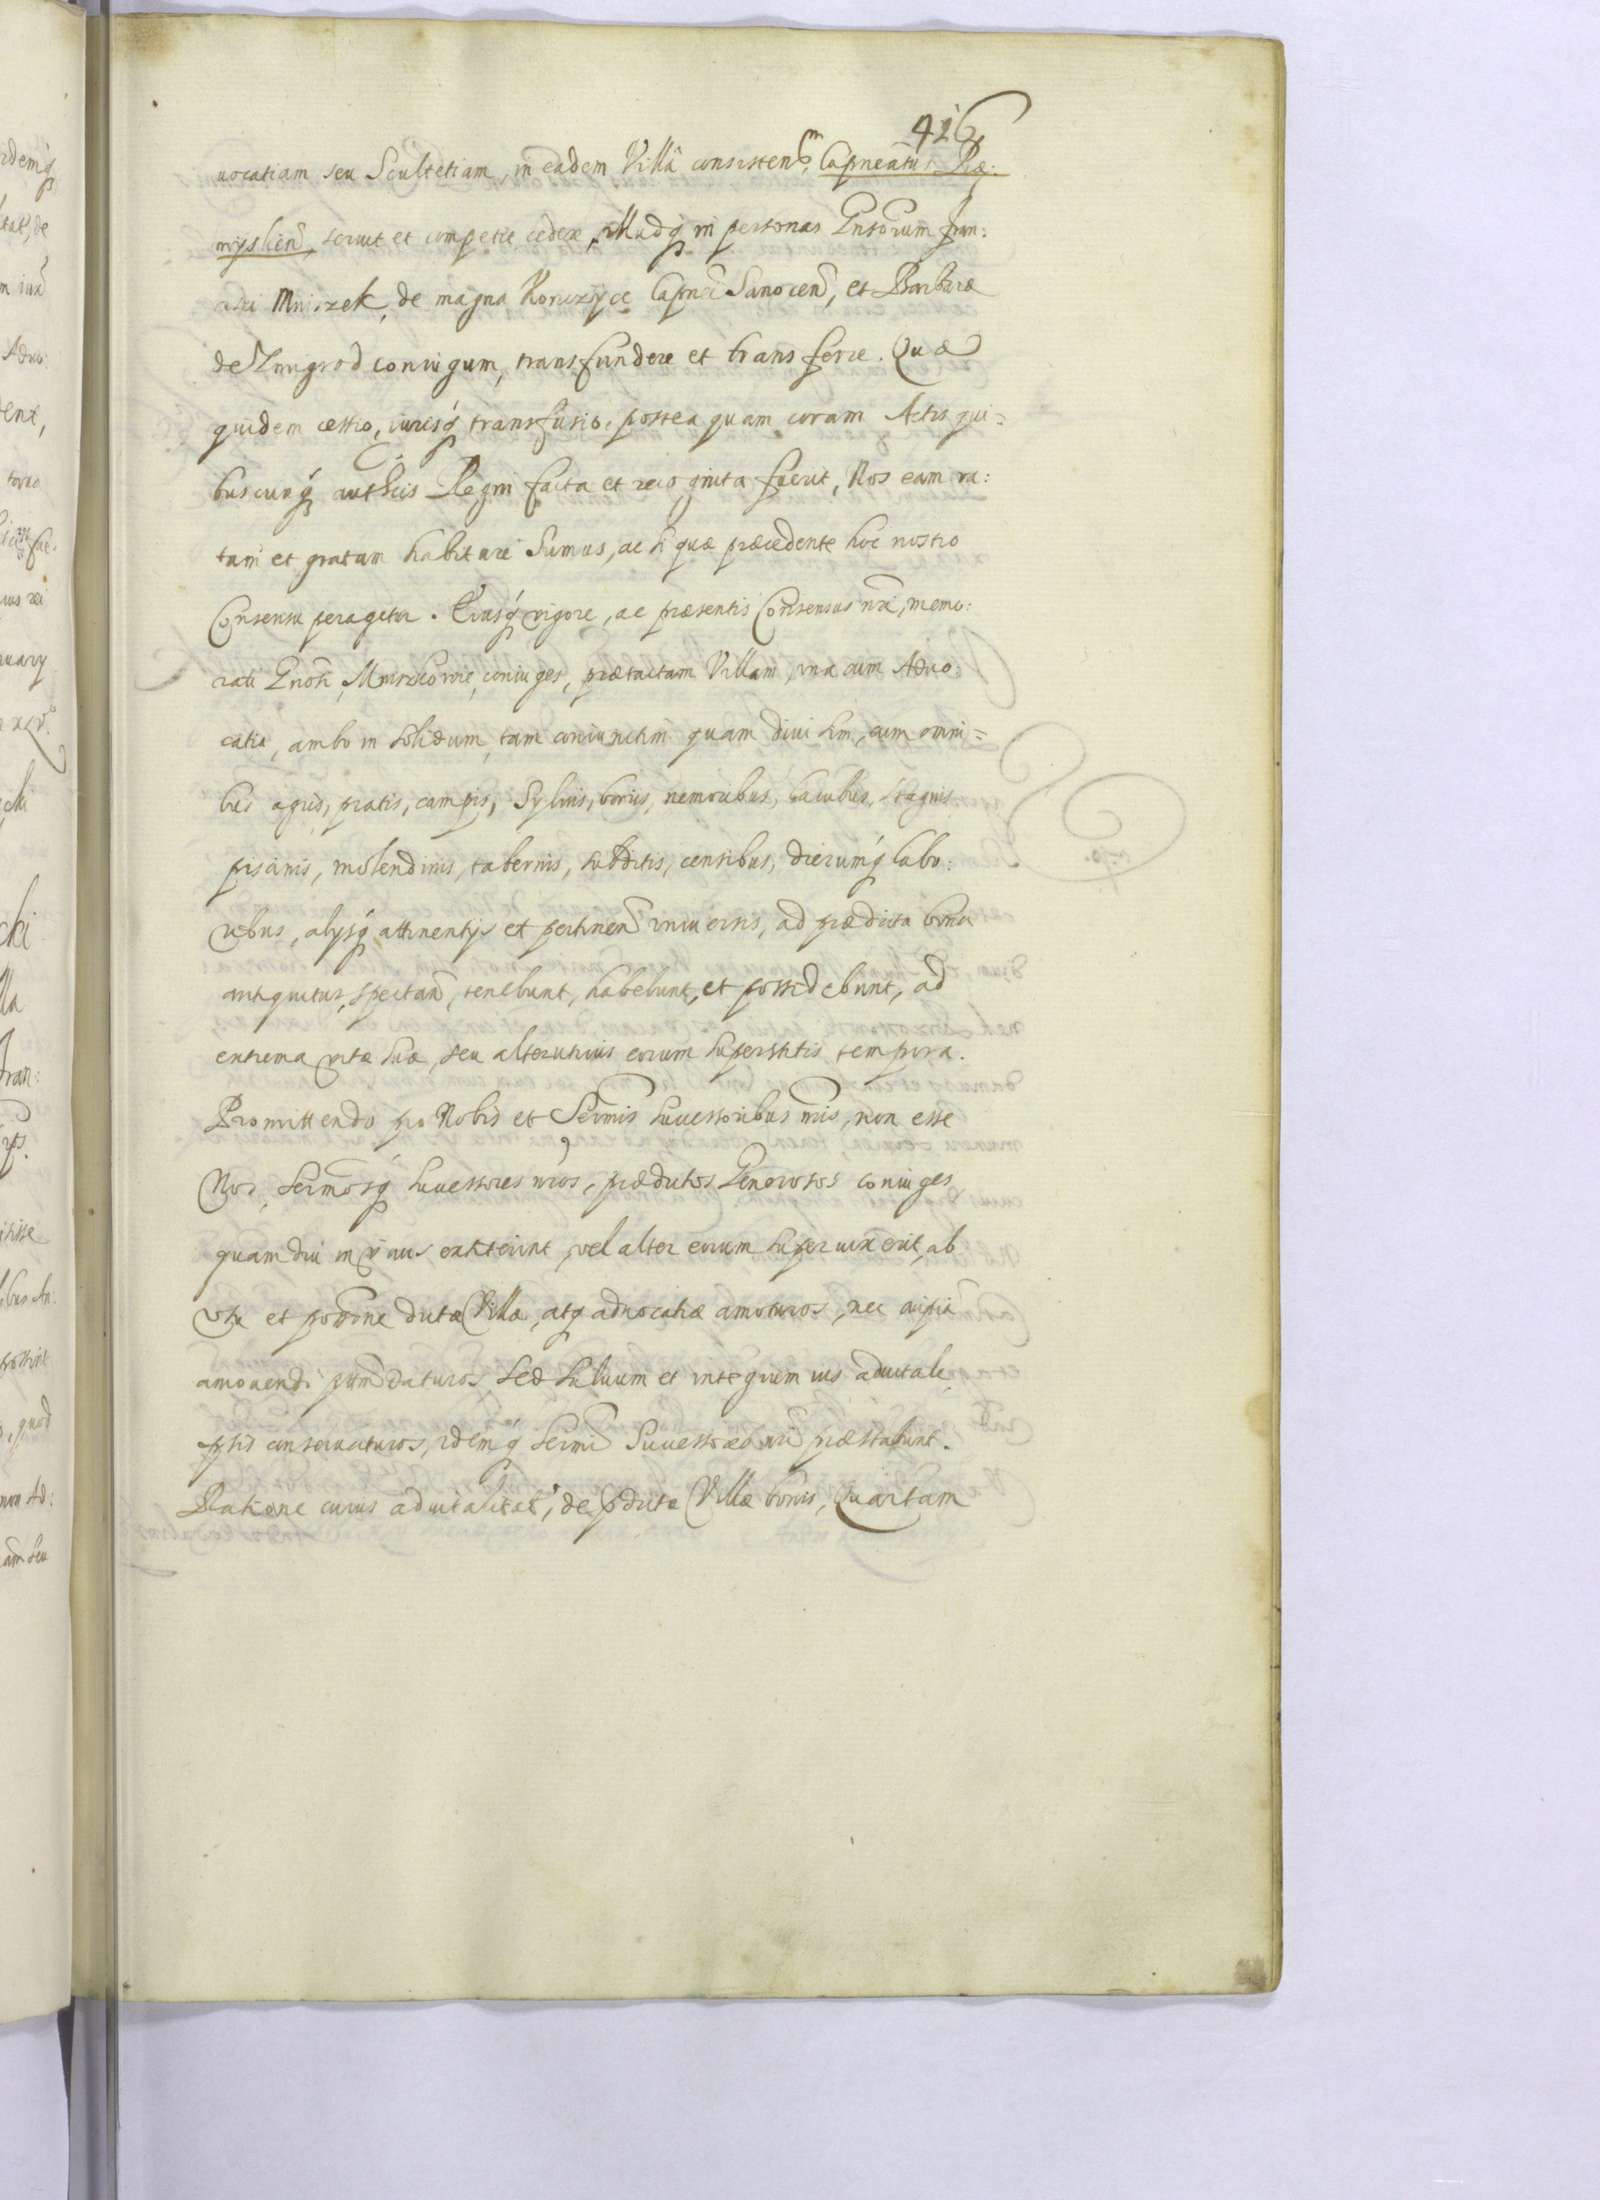 416
uocatiam seu Scultetiam, in eadem Villâ consistenᷤ, Capneatus Præ:
myslien̄, seruit et competit cedere, illudq́ in personas Gn̄sorum Fran:
cisci Mniszek, de magna Konczyce Capnei Sanocen̄, et Barbaræ
de Zmigrod coniugum, transfundere et transferre. Quæ
quidem cessio, iurisq́ transfusio, postea quam coram Actis qui=
buscunq́ auth̄cis Regni facta et recognita fuerit, Nos eam ra:
tam et gratam habituri Sumus, ac si quæ præcedente hoc nostro
Consensu peragetur. Eiusq́ vigore, ac præsentis Consensus nr̄i, memo:
rati Gn̄osi, Mniszkowie, coniuges, prætactam Villam, vna cum Aduo:
catia, ambo in solidum, tam coniunctim quam diuisim, cum omni=
bus agris, pratis, campis, Syluis, boris, nemoribus, lacubus, stagnis
piscinis, molendinis, tabernis, subditis, censibus, dierumq́ labo:
ribus, alysq́ attinentÿs et pertinen̄ vniuersis, ad prædicta bona
antiquitus spectan̄, tenebunt, habebunt, et possidebunt, ad
extrema vitæ suæ, seu alterutrius eorum superstitis tempora.
Promittendo pro Nobis et Serm̄is Successoribus nr̄is, non esse
Nos, Serm̄osq́ Successores nr̄os, prædictos Generosos coniuges
quam diu in viuis extiterint, vel alter eorum superuixerit, ab
vsu et posson̄e dictæ Villæ, atq́ aduocatiæ amoturos, nec cuipiā
amouendi ptt̄em daturos, sed saluum et integrum ius aduitale
ipsis conseruaturos, idemq́ Serm̄i Successores nr̄i præstabunt.
Ratione cuius aduitalitat̄, de pdictæ Villæ bonis, Quartam